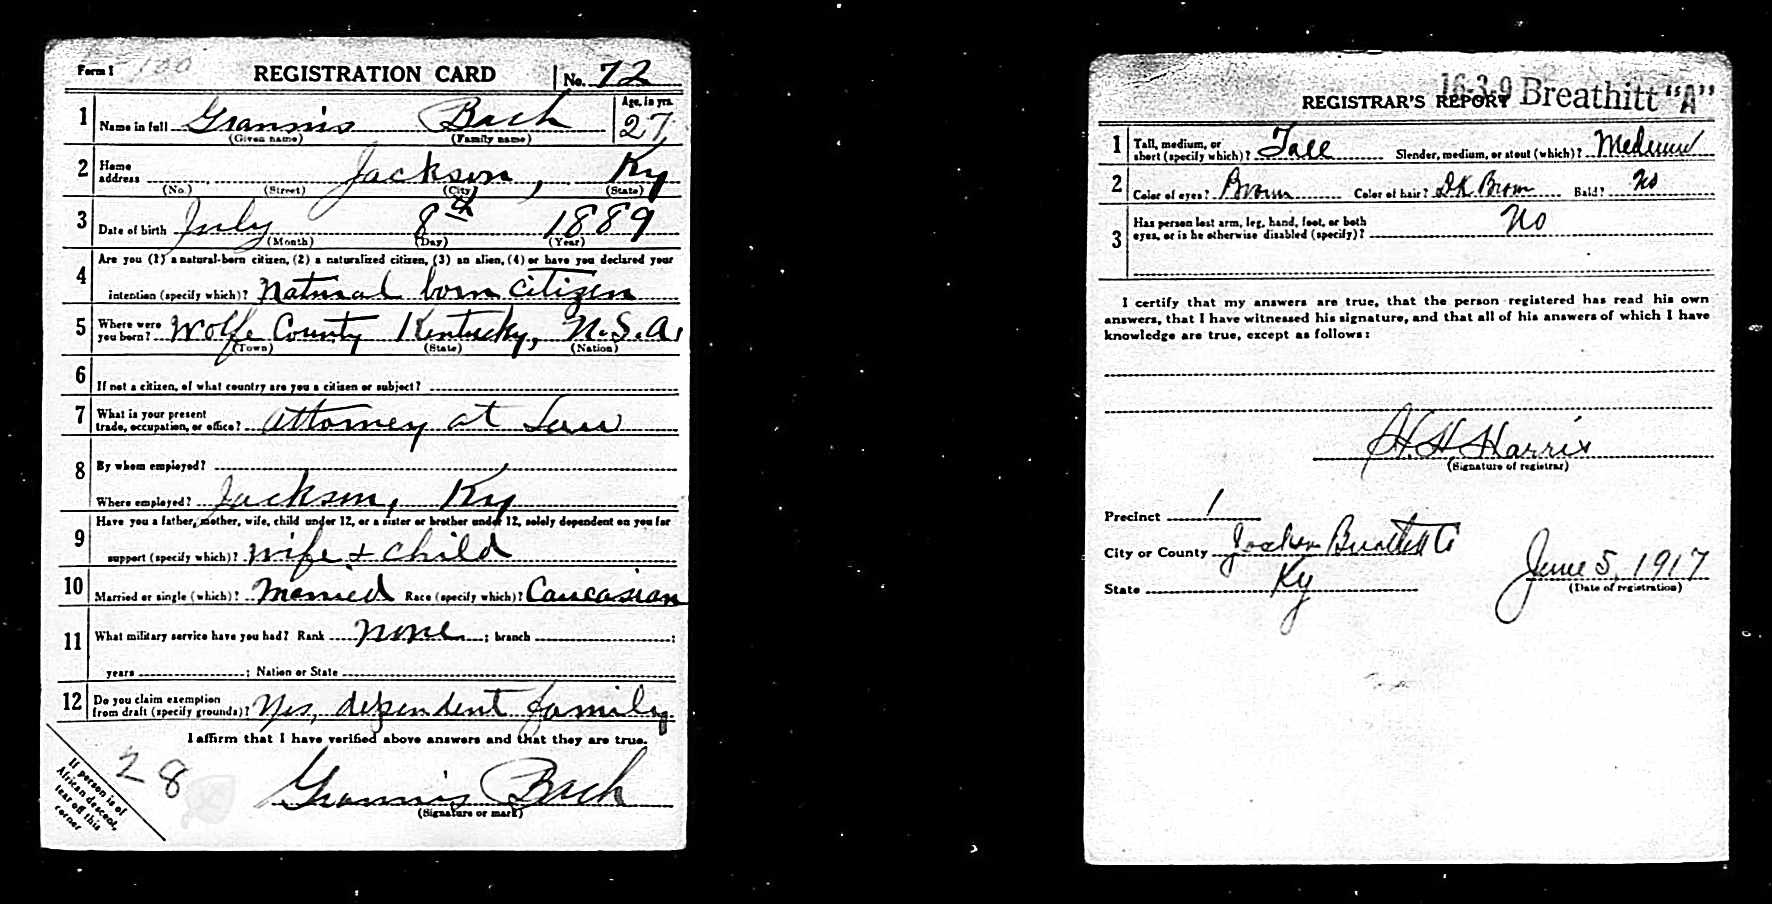 Form 1 100 REGISTRATION CARD No. 72
1 Name in full Grannis Bach Age, in yrs. 27
(Given name) (Family name)
2 Home address Jackson, Ky
(No.) (Street) (City) (State)
3 Date of birth July 8th 1889
(Month) (Day) (Year)
4 Are you (1) a natural-born citizen, (2) a naturalized citizen, (3) an alien, (4) or have you declared your
intention (specify which)? Natural born citizen
5 Where were you born? Wolfe County Kentucky, U.S.A.
(Town) (State) (Nation)
6 If not a citizen, of what country are you a citizen or subject?
7 What is your present
trade, occupation, or office? Attorney at Law
8 By whom employed?
Where employed? Jackson, Ky
9 Have you a father, mother, wife, child under 12, or a sister or brother under 12, solely dependent on you for
support (specify which)? Wife + child
10 Married or single (which)? Married Race (specify which)? Caucasian
11 What military service have you had? Rank None ; branch ;
years ; Nation or State
12 Do you claim exemption
from draft (specify grounds)? Yes, dependent family
I affirm that I have verified above answers and that they are true.
Grannis Bach
(Signature or mark)
28
If person is of
African descent,
tear off this
corner
16-3-9 Breathitt "A"
REGISTRAR'S REPORT
1 Tall, medium, or
short (specify which)? Tall Slender, medium, or stout (which)? Medium
2 Color of eyes? Brown Color of hair? DK Brown Bald? No
3 Has person lost arm, leg, hand, foot, or both
eyes, or is he otherwise disabled (specify)? No
I certify that my answers are true, that the person registered has read his own
answers, that I have witnessed his signature, and that all of his answers of which I have
knowledge are true, except as follows:
H. H. Harris
(Signature of registrar)
Precinct 1
City or County Jackson Breathitt Co
State Ky
June 5, 1917
(Date of registration)